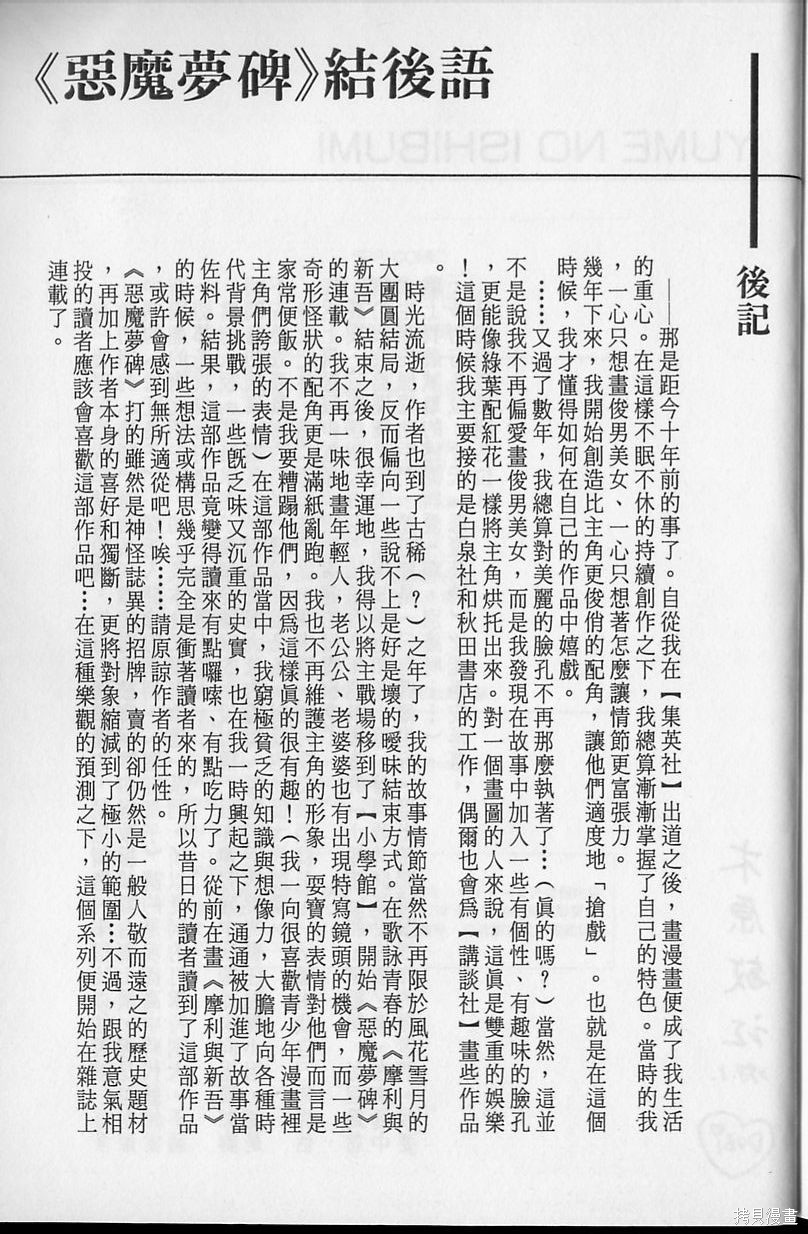 《惡魔夢碑》結後語
後記
——那是距今十年前的事了。自從我在【集英社】出道之後，畫漫畫便成了我生活
的重心。在這樣不眠不休的持續創作之下，我總算漸漸掌握了自己的特色。當時的我
，一心只想畫俊男美女、一心只想著怎麼讓情節更富張力。
幾年下來，我開始創造比主角更俊俏的配角，讓他們適度地「搶戲」。也就是在這個
時候，我才懂得如何在自己的作品中嬉戲。
……又過了數年，我總算對美麗的臉孔不再那麼執著了…（真的嗎？）當然，這並
不是說我不再偏愛畫俊男美女，而是我發現在故事中加入一些有個性、有趣味的臉孔
，更能像綠葉配紅花一樣將主角烘托出來。對一個畫圖的人來說，這真是雙重的娛樂
！這個時候我主要接的是白泉社和秋田書店的工作，偶爾也會為【講談社】畫些作品
。
時光流逝，作者也到了古稀（？）之年了，我的故事情節當然不再限於風花雪月的
大團圓結局，反而偏向一些說不上是好是壞的曖昧結束方式。在歌詠青春的《摩利與
新吾》結束之後，很幸運地，我得以將主戰場移到了【小學館】，開始《惡魔夢碑》
的連載。我不再一味地畫年輕人，老公公、老婆婆也有出現特寫鏡頭的機會，而一些
奇形怪狀的配角更是滿紙亂跑。我也不再維護主角的形象，耍寶的表情對他們而言是
家常便飯。不是我要糟蹋他們，因為這樣真的很有趣！（我一向很喜歡青少年漫畫裡
主角們誇張的表情）在這部作品當中，我窮極貧乏的知識與想像力，大膽地向各種時
代背景挑戰，一些既乏味又沉重的史實，也在我一時興起之下，通通被加進了故事當
佐料。結果，這部作品竟變得讀來有點囉嗦、有點吃力了。從前在畫《摩利與新吾》
的時候，一些想法或構思幾乎完全是衝著讀者來的，所以昔日的讀者讀到了這部作品
，或許會感到無所適從吧！唉……請原諒作者的任性。
《惡魔夢碑》打的雖然是神怪誌異的招牌，賣的卻仍然是一般人敬而遠之的歷史題材
，再加上作者本身的喜好和獨斷，更將對象縮減到了極小的範圍…不過，跟我意氣相
投的讀者應該會喜歡這部作品吧…在這種樂觀的預測之下，這個系列便開始在雜誌上
連載了。
拷貝漫畫